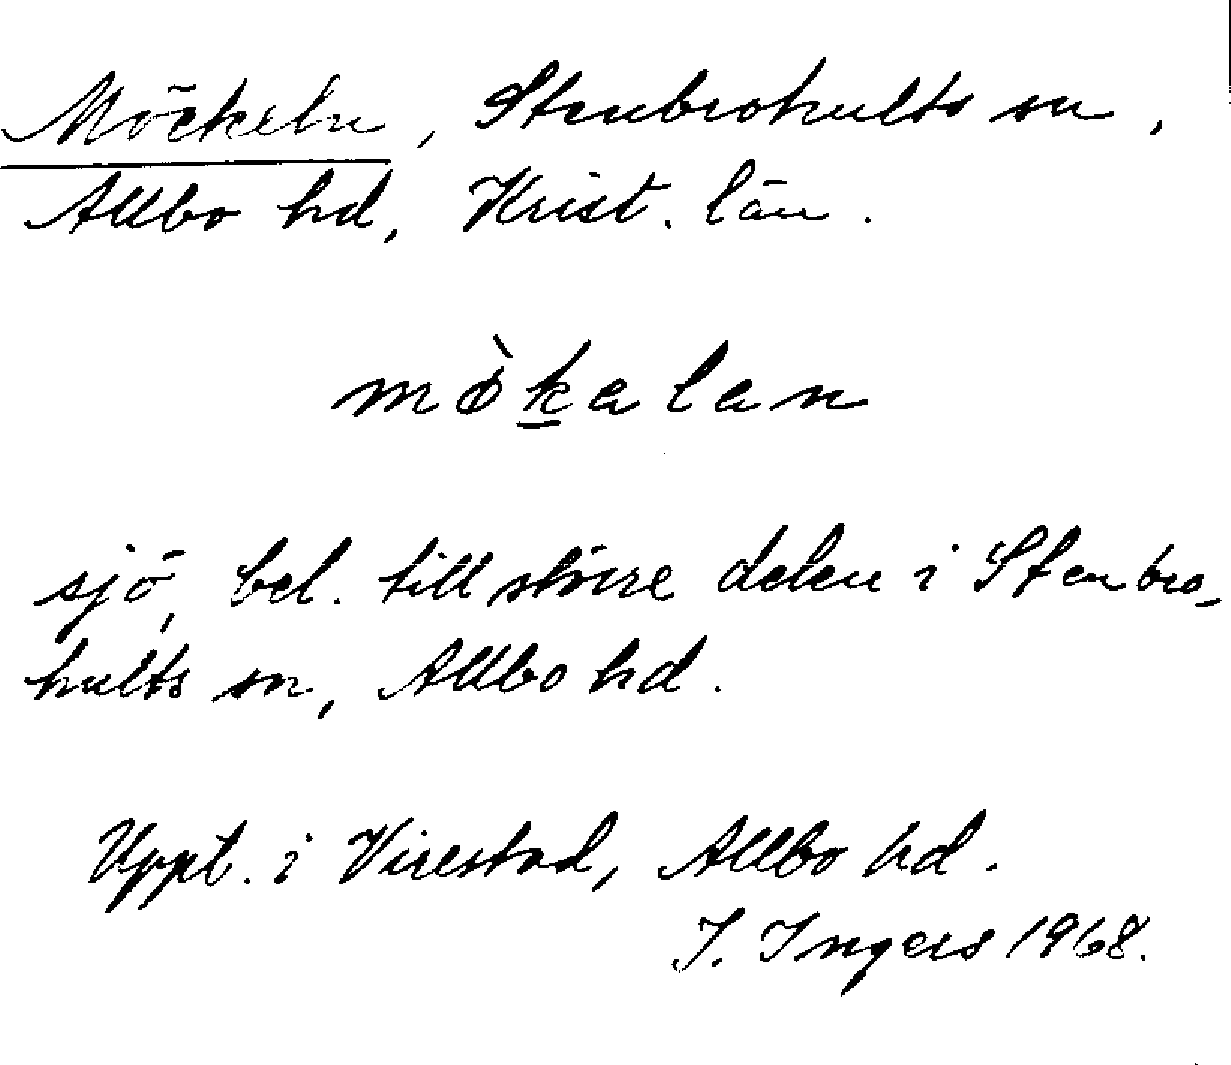 Möckeln, Stenbrohults sn,
Allbo hd, Krist. län.
mø̀ḵalan
sjö, bel. till större delen i Stenbro-
hults sn, Allbo hd.
Uppt. i Virestad, Allbo hd.
I. Ingers 1968.